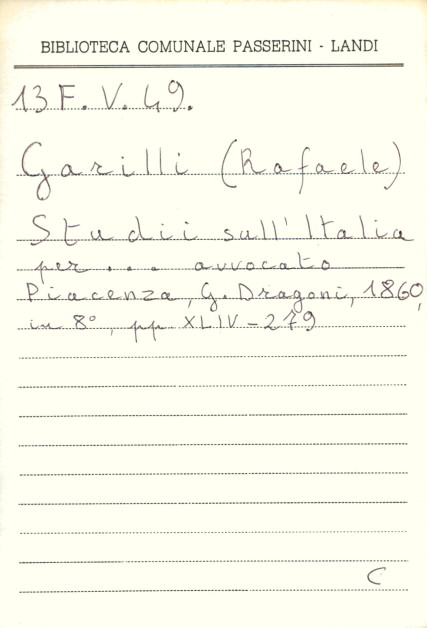 BIBLIOTECA COMUNALE PASSERINI - LANDI
13 F. V. 49.
Garilli (Rafaele)
Studii sull'Italia
per ... avvocato
Piacenza, G. Dragoni, 1860,
in 8°, pp XLIV - 279
C